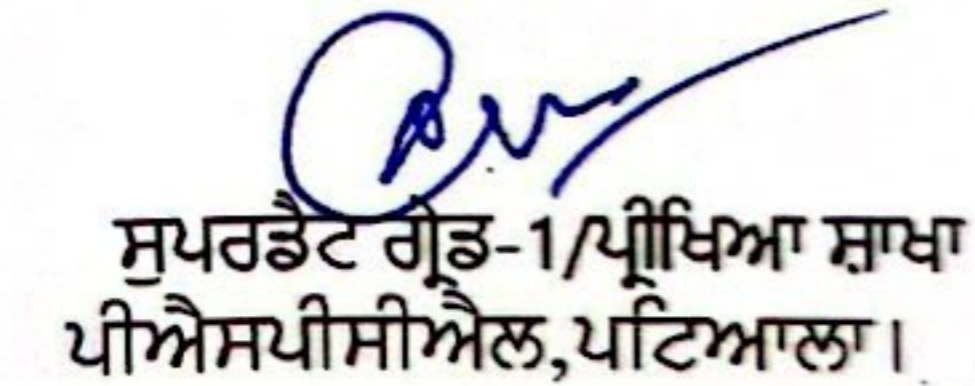 ਸੁਪਰਡੈਟ ਗ੍ਰੇਡ-1/ਪ੍ਰੀਖਿਆ ਸ਼ਾਖਾ
ਪੀਐਸਪੀਸੀਐਲ,ਪਟਿਆਲਾ।